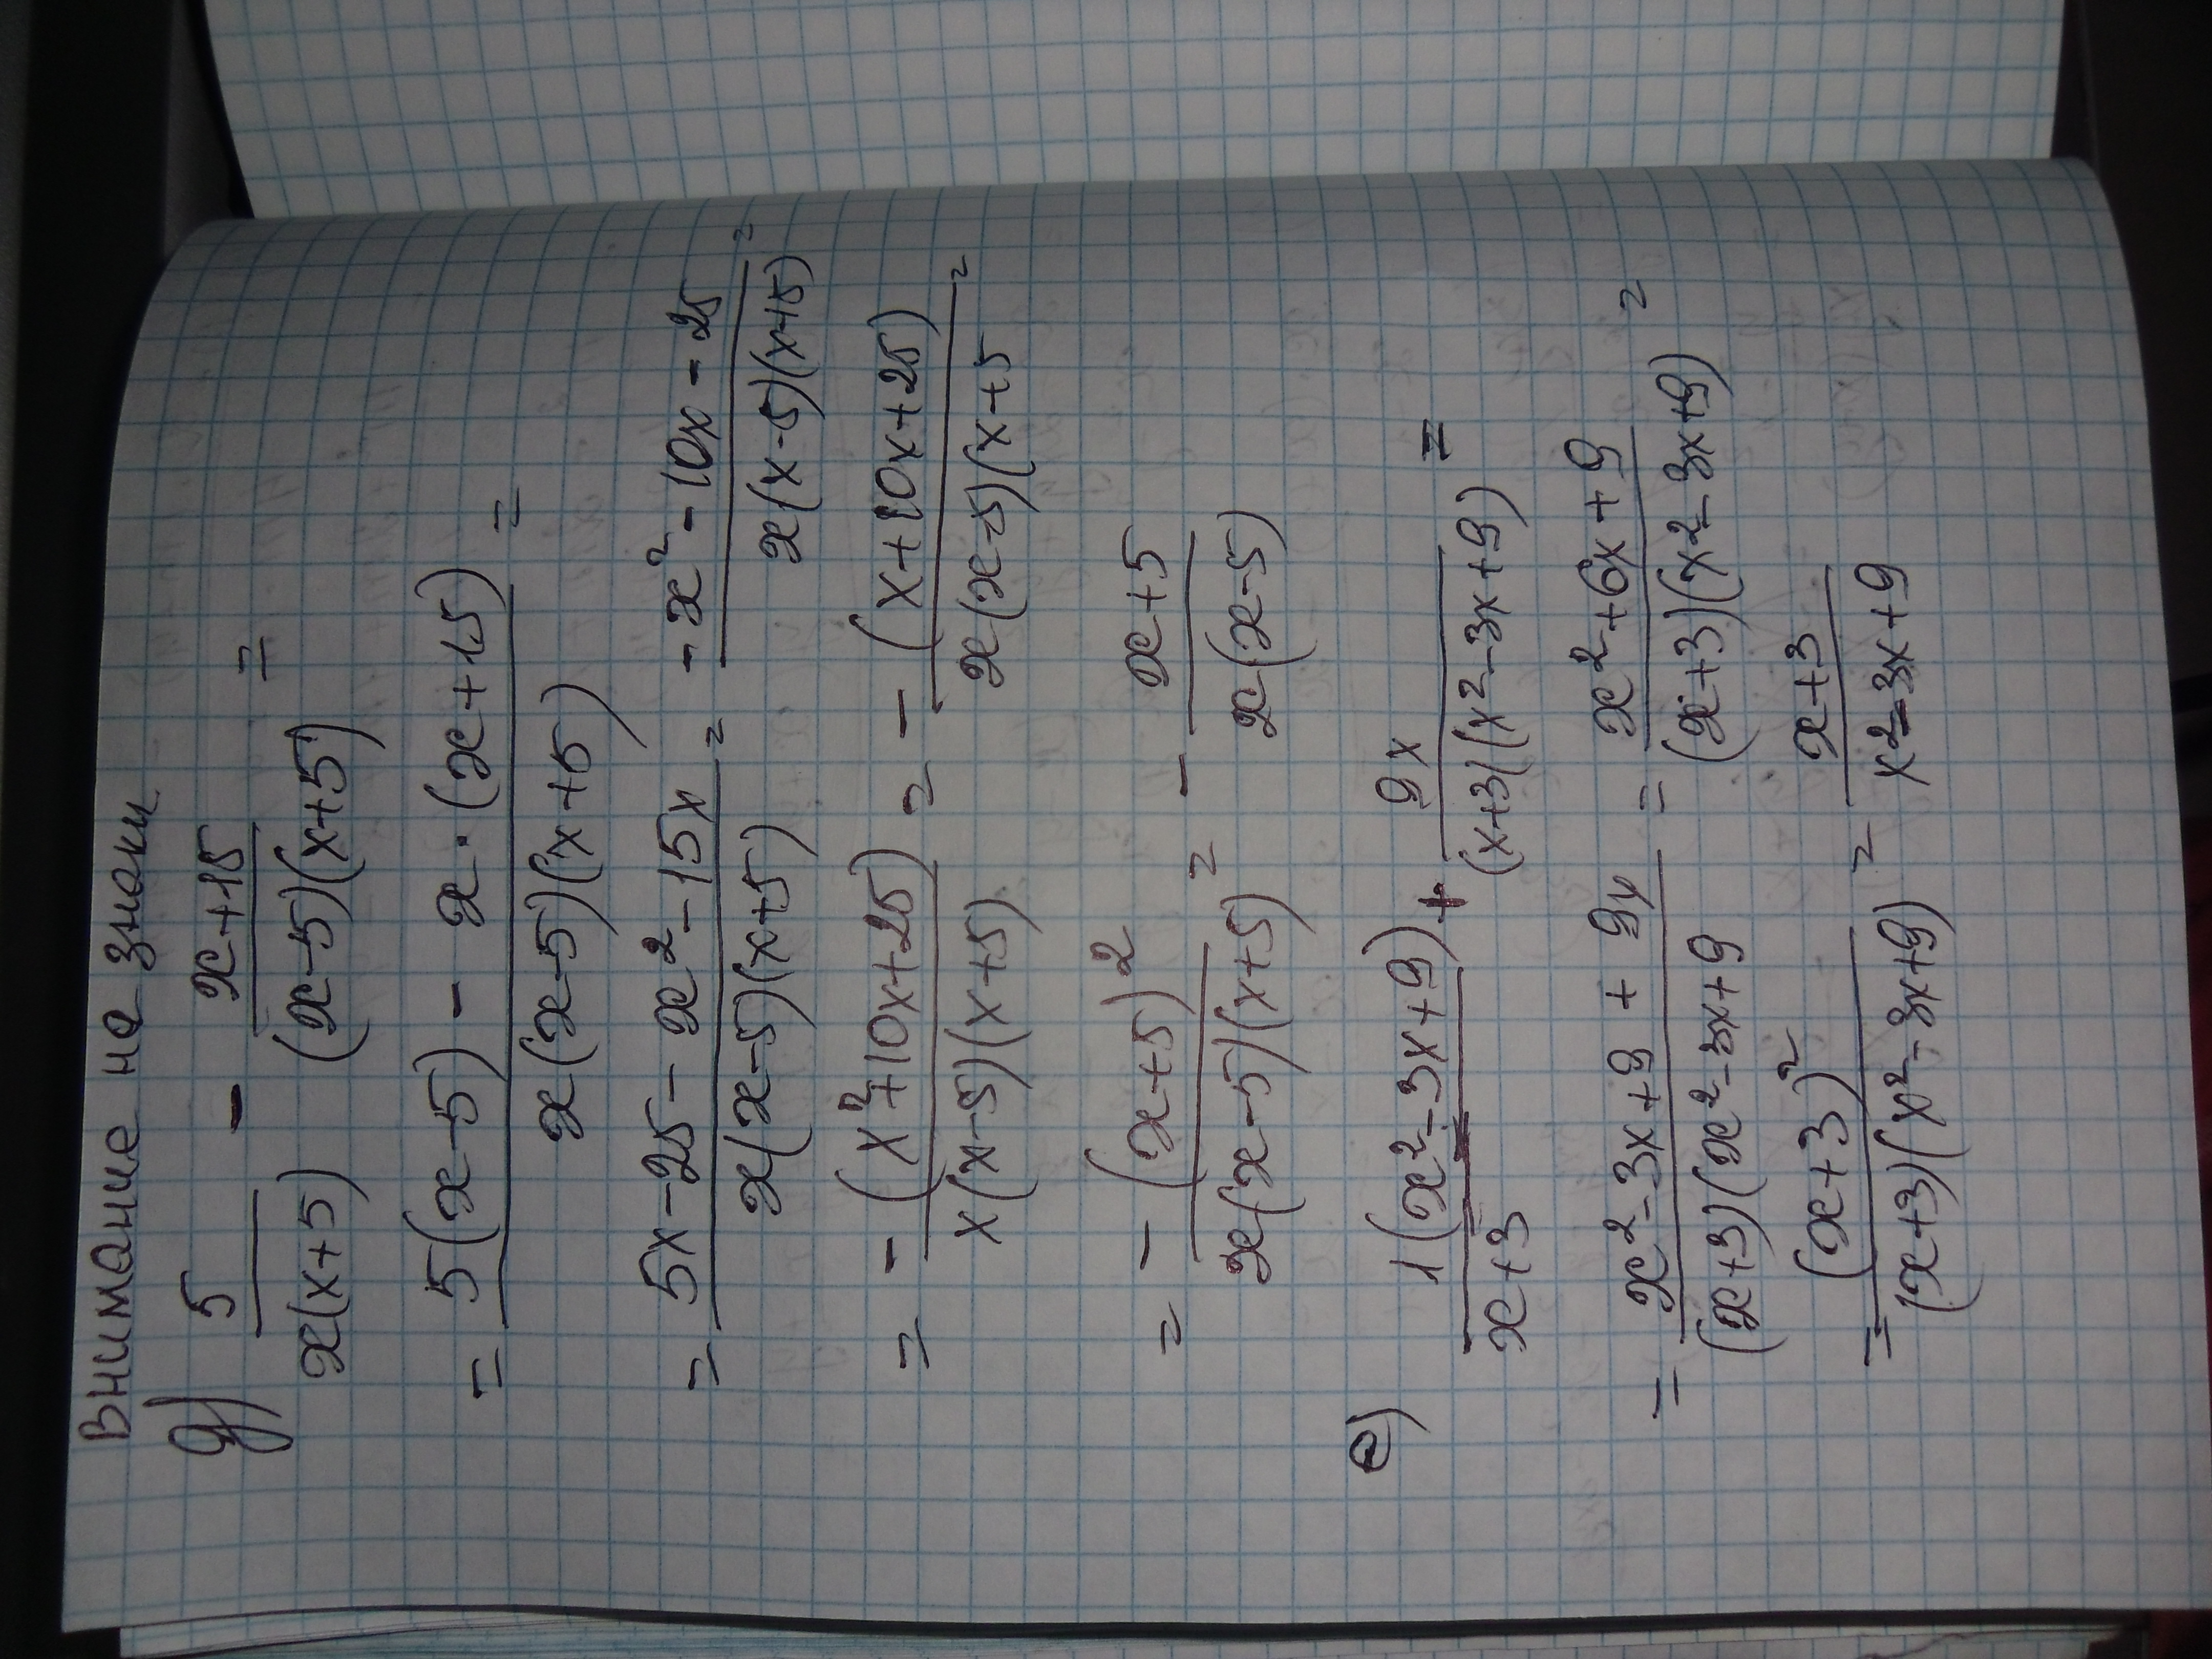 Внимание на знаки
д) 5/(x(x+5)) - (x+15)/((x-5)(x+5)) =
= (5(x-5) - x·(x+15))/(x(x-5)(x+5)) =
= (5x-25-x²-15x)/(x(x-5)(x+5)) = (-x²-10x-25)/(x(x-5)(x+5)) =
= -(x²+10x+25)/(x(x-5)(x+5)) = -(x+10x+25)/(x(x-5)(x+5 =
= -(x+5)²/(x(x-5)(x+5)) = - (x+5)/(x(x-5))
е) 1(x²-3x+9)/(x+3) + 9x/((x+3)(x²-3x+9)) =
= (x²-3x+9+9x)/((x+3)(x²-3x+9 = (x²+6x+9)/((x+3)(x²-3x+9)) =
= (x+3)²/((x+3)(x²-3x+9)) = (x+3)/(x²-3x+9)